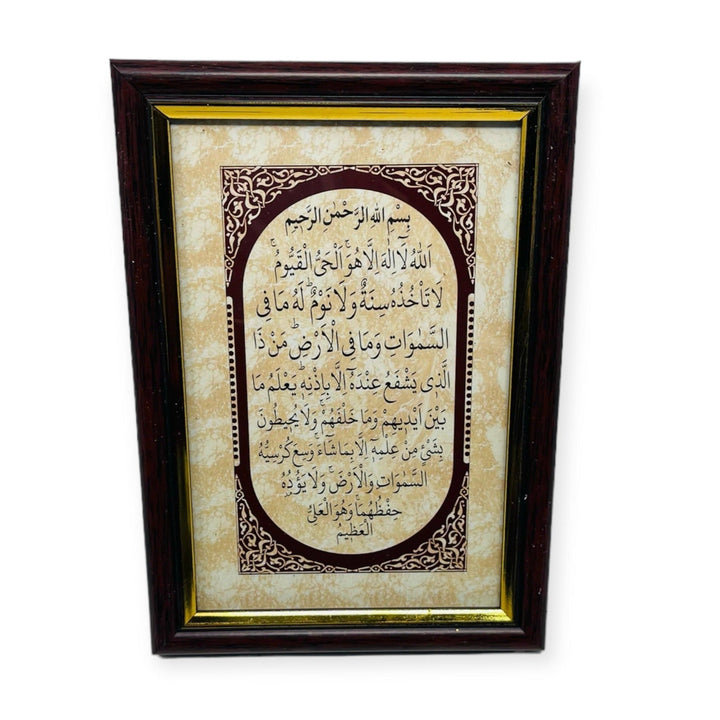 بِسْمِ اللهِ الرَّحْمٰنِ الرَّحِيمِ
اَللّٰهُ لَٓا اِلٰهَ اِلَّا هُوَۚ اَلْحَيُّ الْقَيُّومُۚ
لَا تَأْخُذُهُ سِنَةٌ وَلَا نَوْمٌۜ لَهُ مَا فِي
السَّمٰوَاتِ وَمَا فِي الْاَرْضِۜ مَنْ ذَا
الَّذِي يَشْفَعُ عِنْدَهُٓ اِلَّا بِاِذْنِهِۜ يَعْلَمُ مَا
بَيْنَ اَيْدِيهِمْ وَمَا خَلْفَهُمْۚ وَلَا يُحِيطُونَ
بِشَيْءٍ مِنْ عِلْمِهِٓ اِلَّا بِمَا شَٓاءَۚ وَسِعَ كُرْسِيُّهُ
السَّمٰوَاتِ وَالْاَرْضَۚ وَلَا يَؤُ۫دُهُ
حِفْظُهُمَاۚ وَهُوَ الْعَلِيُّ
الْعَظِيمُ